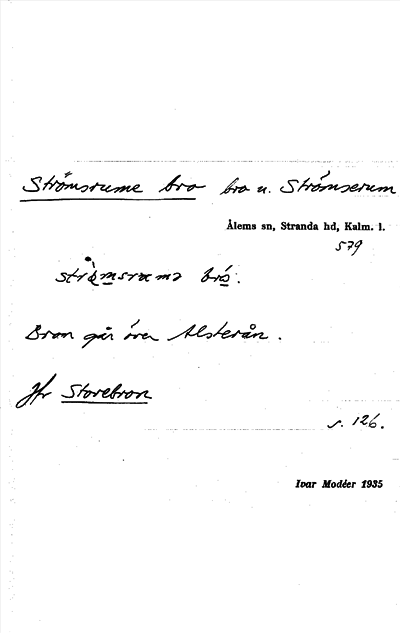 Strömsrume bro bro u. Strömserum
Ålems sn, Stranda hd, Kalm. l.
579
bro.
Bron går över Alsterån.
Jfr Storebron
s. 126.
Ivar Modéer 1935